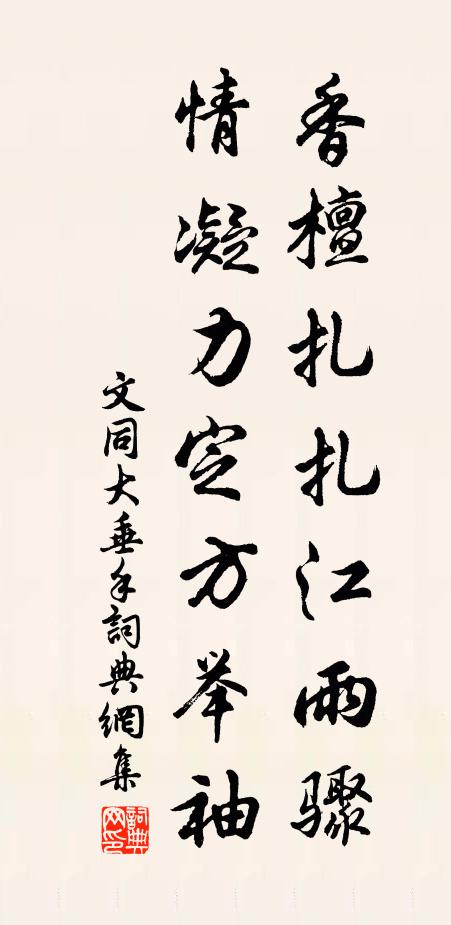 香檀扎扎江雨驟
情凝力定方举袖
文同大垂手詞典網集
詞典網印